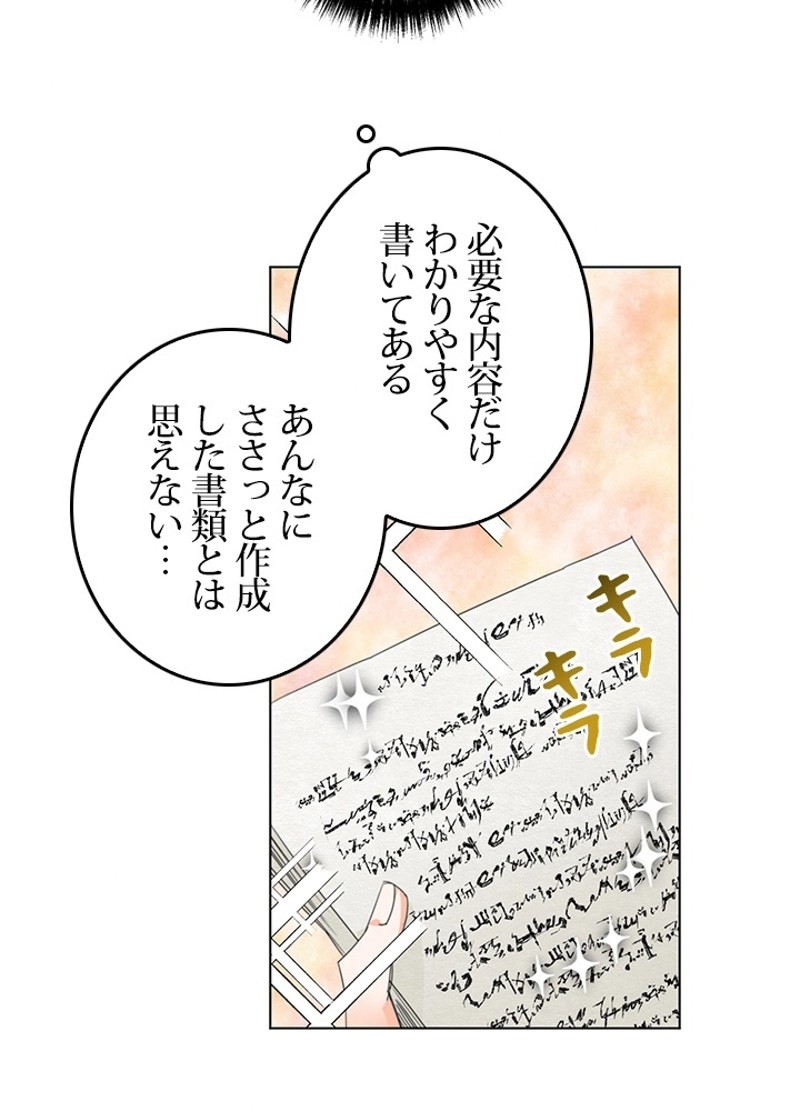 必要な内容だけ
わかりやすく
書いてある
あんなに
ささっと作成
した書類とは
思えない…
キラ
キラ